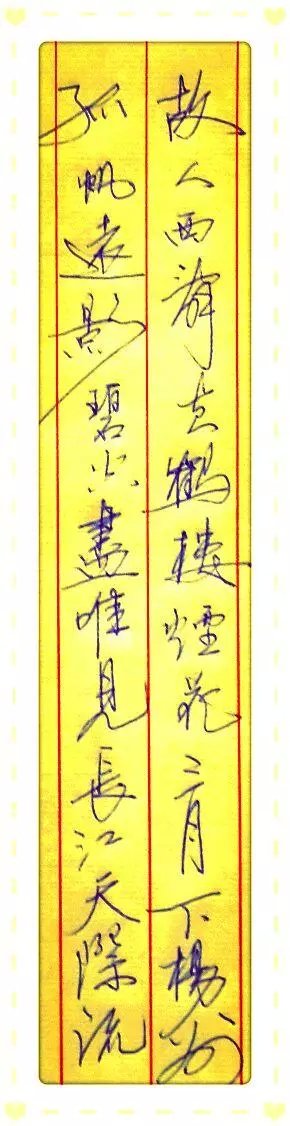 故人西辭黃鶴樓煙花三月下楊州
孤帆遠影碧空盡唯見長江天際流